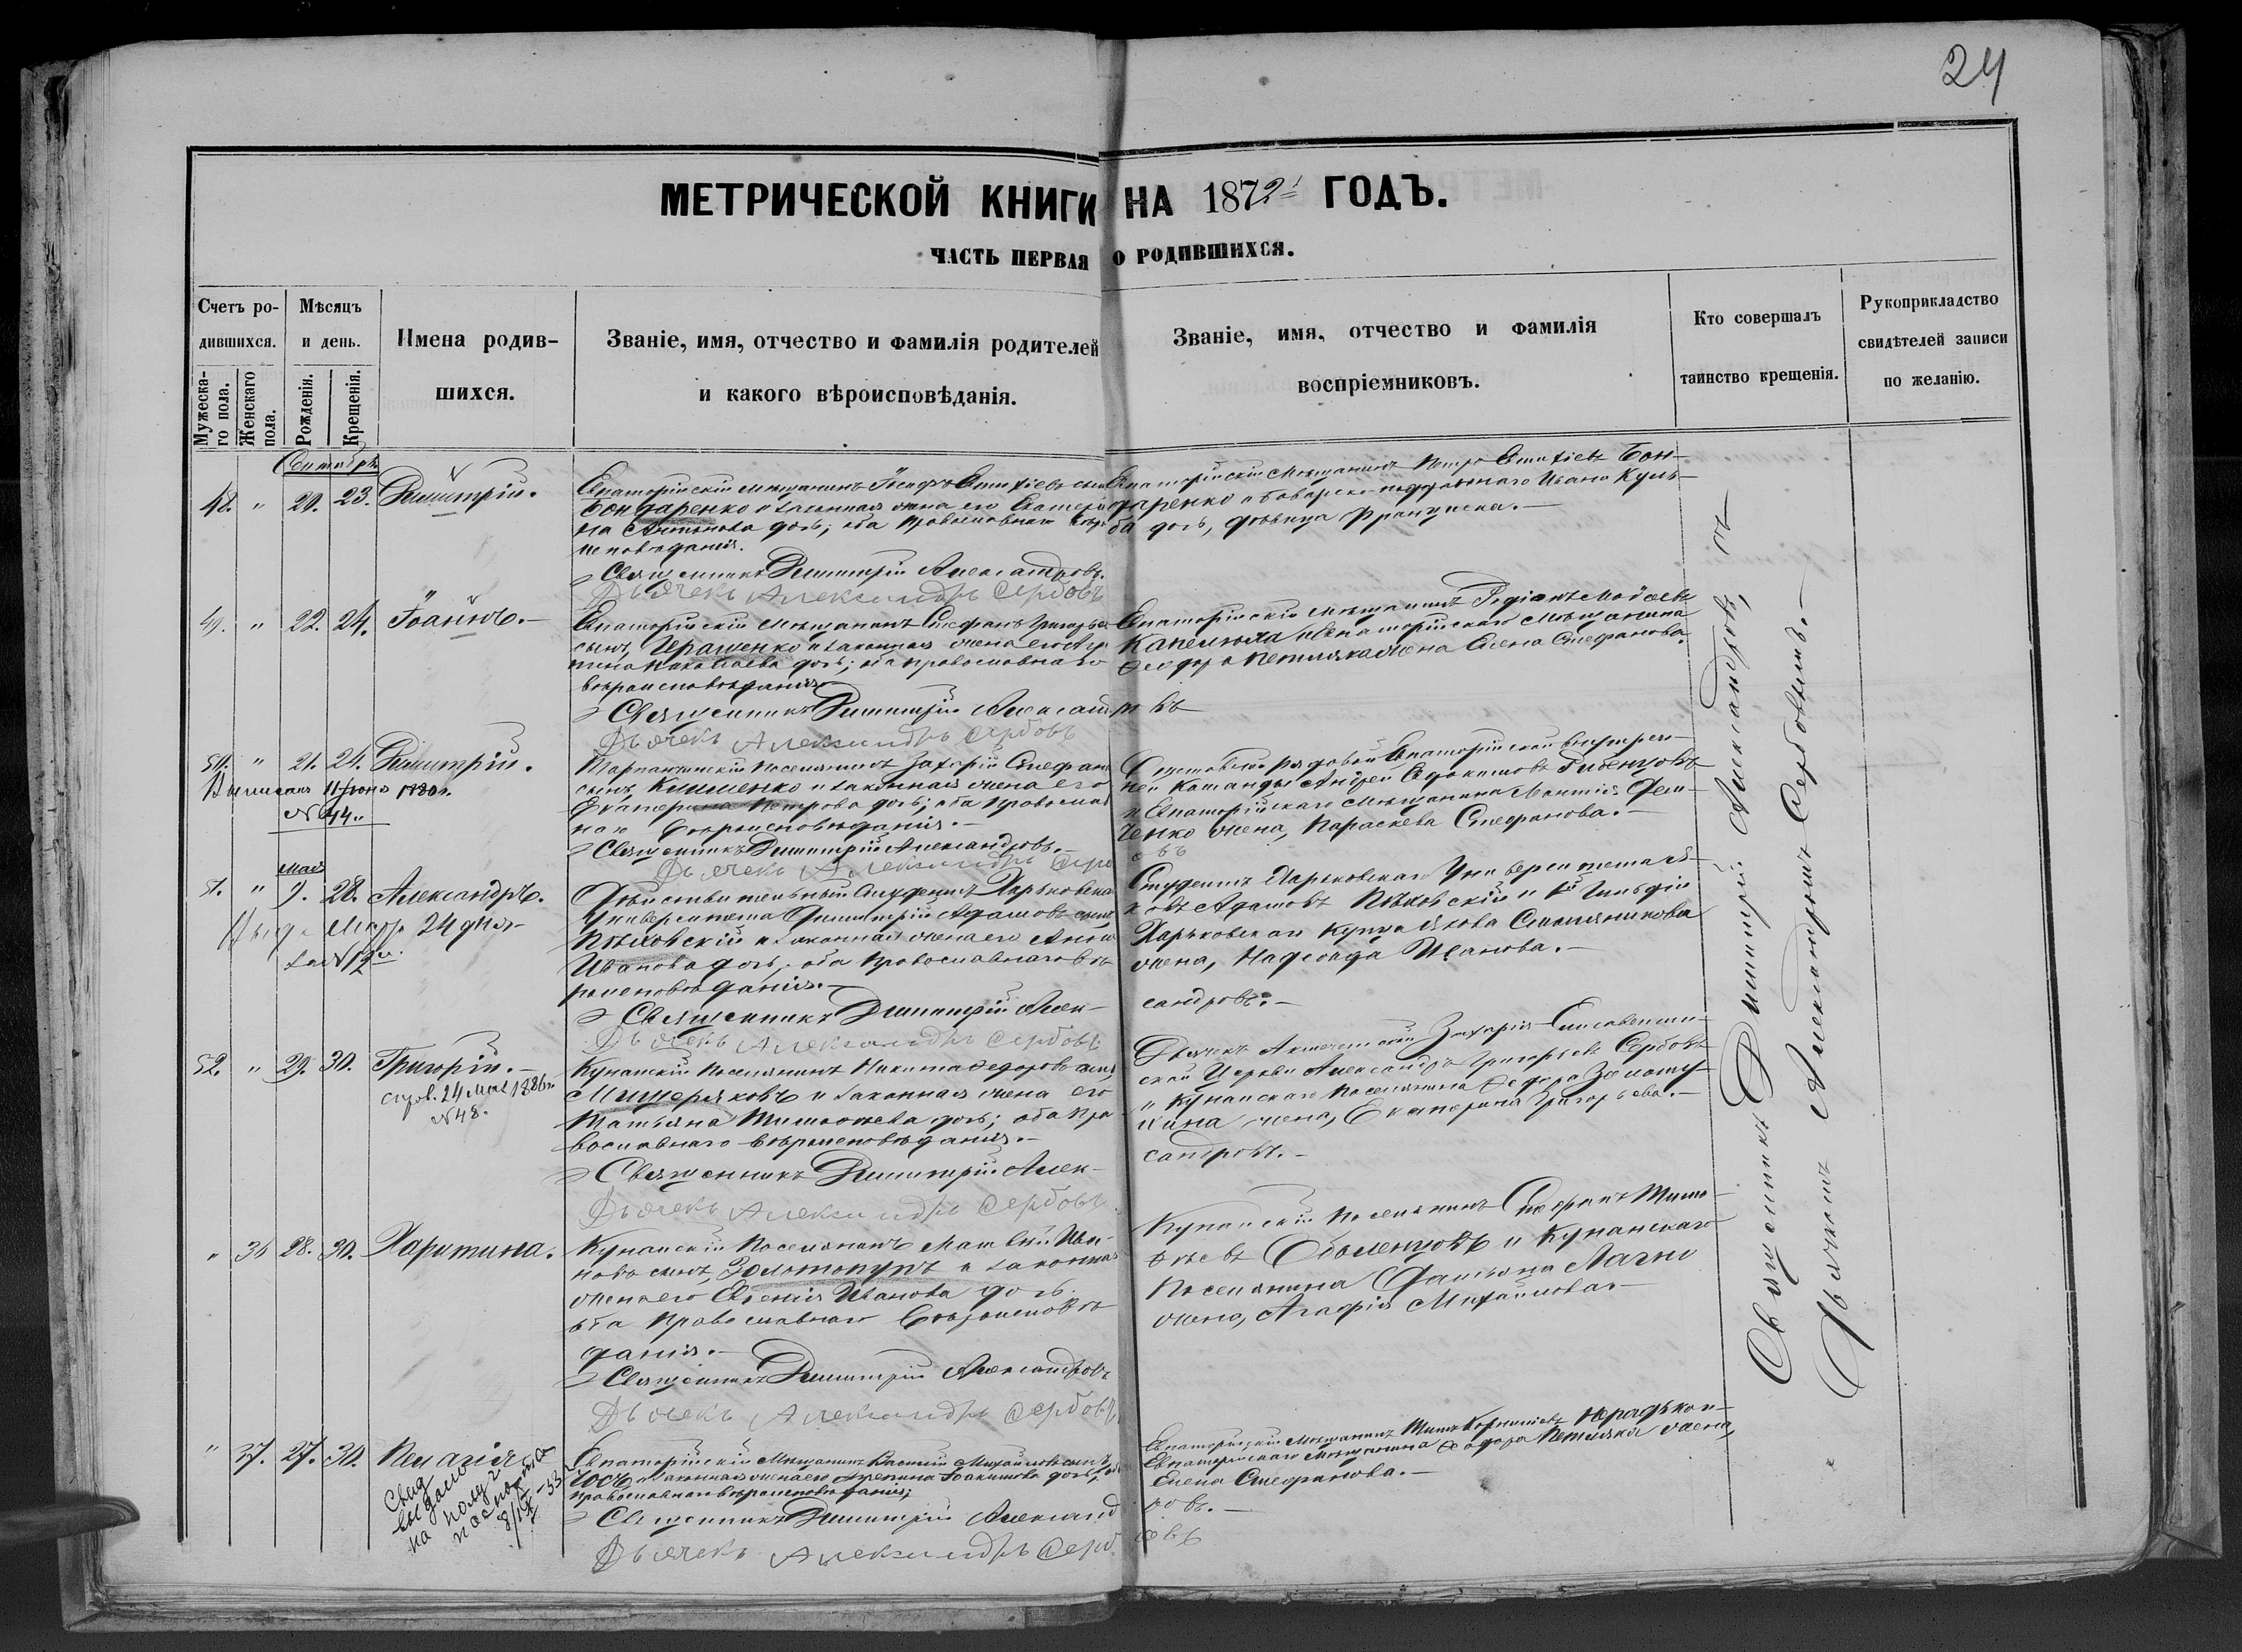 24
МЕТРИЧЕСКОЙ КНИГИ НА 1872й ГОДЪ.
ЧАСТЬ ПЕРВАЯ О РОДИВШИХСЯ.
Счетъ ро-
дившихся.
Мужеска-
го пола.
Женскаго
пола.
Мѣсяцъ
и день.
Рожденія.
Крещенія.
Имена родив-
шихся.
Званіе, имя, отчество и фамилія родителей
и какого вѣроисповѣданія.
Званіе, имя, отчество и фамилія
воспріемниковъ.
Кто совершалъ
таинство крещенія.
Рукоприкладство
свидѣтелей записи
по желанію.
Сентябрь
48. " 20. 23. Димитрій.
Евпаторійскій мѣщанинъ Іосифъ Евтихіевъ сынъ
Бондаренко и законная жена его Екатери
на Антонова дочь; оба православнаго вѣро
исповѣданія.
Священникъ Димитрій Александровъ.
Дьячекъ Александръ Сербовъ
Евпаторійскій мѣщанинъ Петръ Евтихіевъ Бон-
даренко и баварско-подданнаго Ивана Куль-
ба дочь, дѣвица Франциска.
49. " 22. 24. Іоаннъ.
Евпаторійскій мѣщанинъ Стефанъ Григорьевъ
сынъ, Геращенко и законная жена его
Николаева дочь; оба православнаго
вѣроисповѣданія
Священникъ Димитрій Александровъ
Дьячекъ Александръ Сербовъ
Евпаторійскій мѣщанинъ Родіонъ Моѵсеевъ
Капелюха и Евпаторійскаго мѣщанина
Ѳеодора Петляка жена Елена Стефанова.
50. " 21. 24. Димитрій.
Выписанъ 11 Іюня 1880 г.
№ 44.
Тарпанчинскій поселянинъ Захарій Стефановъ
сынъ, Клименко и законная жена его
Екатерина Петрова дочь; оба православ
наго вѣроисповѣданія.
Священникъ Димитрій Александровъ.
Дьячекъ Александръ Сербовъ
рядовой Евпаторійской внутрен-
ней команды Андрей Евдокимовъ
и Евпаторійскаго мѣщанина Дем-
ченко жена, Параскева Стефанова.
мая
51. " 9. 28. Александръ.
24 дня
за № 12
Дѣйствительный студентъ Харьковскаго
Университета Димитрій Адамовъ сынъ
и законная жена его Анна
Иванова дочь, оба православнаго вѣ
роисповѣданія.
Священникъ Димитрій Алек-
сандровъ.
Дьячекъ Александръ Сербовъ
Студентъ Харьковскаго Университета Я-
ковъ Адамовъ и 1й гильдіи
Харьковскаго купца Якова
жена, Надежда Иванова.
52. " 29. 30. Григорій.
24 мая 1886 г.
№ 48.
Кунанскій поселянинъ Никита Ѳедоровъ сынъ,
Мищеряковъ и законная жена его
Татьяна Тимоѳеева дочь; оба пра
вославнаго вѣроисповѣданія.
Священникъ Димитрій Алек-
сандровъ.
Дьячекъ Александръ Сербовъ
Дьячекъ Акмечетской Захарія-Елисаветин-
ской церкви Александръ Григорьевъ Сербовъ
и Кунанскаго поселянина Ѳедора
жена, Екатерина Григорьева.
" 36 28. 30. Харитина.
Кунанскій поселянинъ Матвѣй Ива-
новъ сынъ, Золотопупъ и законная
жена его Евгенія Иванова дочь
оба православнаго вѣроисповѣ
данія.
Священникъ Димитрій Александровъ
Дьячекъ Александръ Сербовъ
Кунанскій поселянинъ Стефанъ Тимо-
ѳеевъ Оболенцовъ и Кунанскаго
поселянина
жена, Агафія Михайлова.
" 37. 27. 30. Пелагія
Свид
выдано
на получ
паспорта
Евпаторійскій мѣщанинъ Василій Михайловъ сынъ,
законная жена его Акимова дочь, оба
православнаго вѣроисповѣданія;
Священникъ Димитрій Александ
ровъ.
Дьячекъ Александръ Сербовъ
Евпаторійскій мѣщанинъ
Евпаторійскаго мѣщанина Ѳеодора Петляка жена,
Елена Стефанова.
Священникъ Димитрій Александровъ, съ
Дьячкомъ Александромъ Сербовымъ.